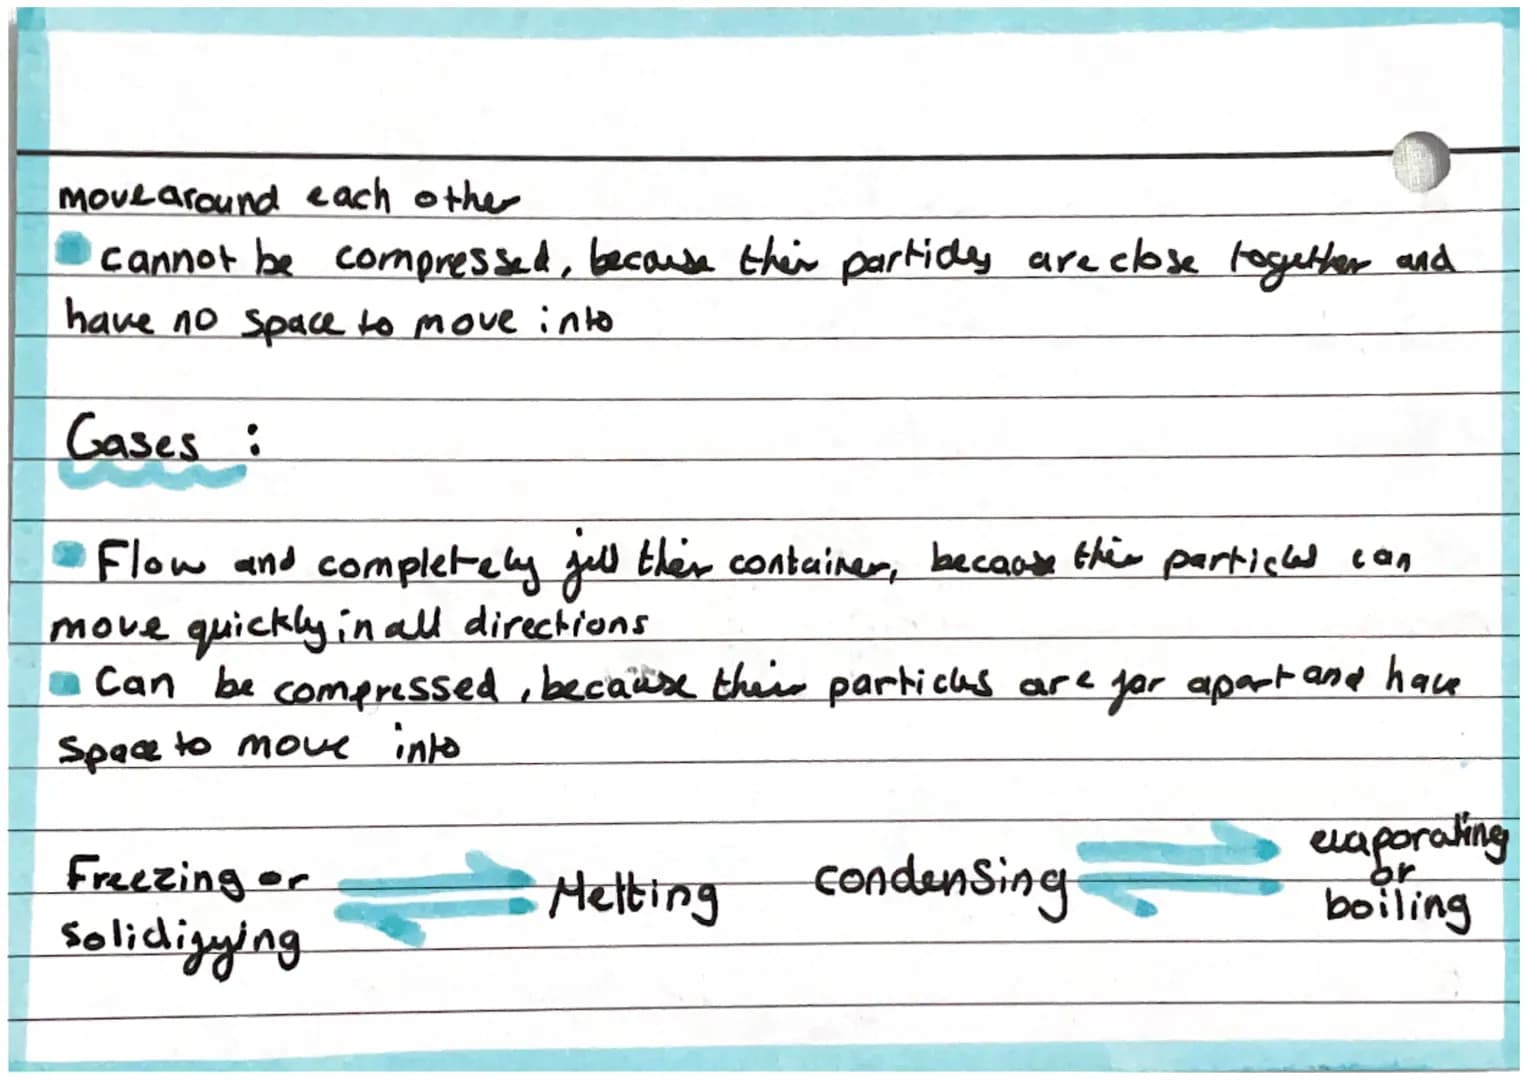 move around each other
cannot be compressed, because their particles are close together and
have no space to move into
Gases :
Flow and completely fill their container, because their particles can
move quickly in all directions
Can be compressed, because their particles are far apart and have
space to move into
Freezing or
solidifying
Melting
condensing
evaporating
or
boiling